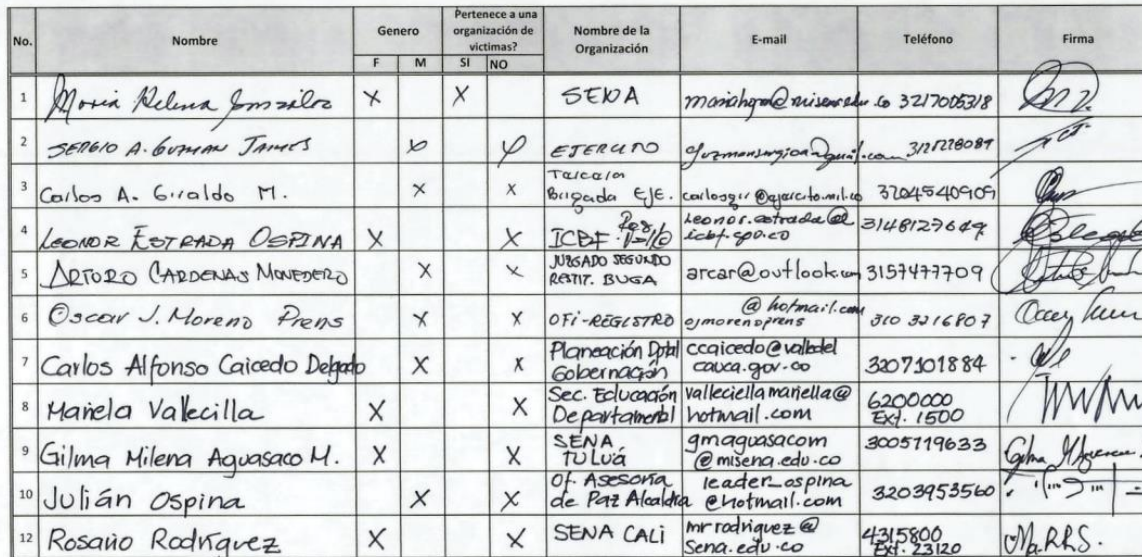 No. Nombre Genero Pertenece a una organización de victimas? Nombre de la Organización E-mail Teléfono Firma
F M SI NO
1 Maria Helena González X X SENA 3217005318
2 SERGIO A. GUZMAN JAIMES X X EJERCITO
3 Carlos A. Giraldo M. X X Tercera Brigada EJE. 3204540909
4 LEONOR ESTRADA OSPINA X X ICBF Reg. Valle leonor.estrada@icbf.gov.co 3148127649
5 ARTURO CARDENAS MONEDERO X X JUZGADO SEGUNDO RESTIT. BUGA arcar@outlook.com 3157477709
6 Oscar J. Moreno Prens X X OFI-REGISTRO ojmorenoprens @hotmail.com 310 3216807
7 Carlos Alfonso Caicedo Delgado X X Planeación Dptal Gobernación ccaicedo@valledel cauca.gov.co 3207101884
8 Mariela Vallecilla X X Sec. Educación Departamental valleciellamariella@ hotmail.com 6200000 Ext. 1500
9 Gilma Milena Aguasaco M. X X SENA TULUÁ gmaguasacom @misena.edu.co 3005719633
10 Julián Ospina X X Of. Asesoria de Paz Alcaldia leader_ospina @hotmail.com 3203953560
12 Rosario Rodríguez X X SENA CALI mrrodriguez@ Sena.edu.co 4315800 Ext. 23120 Ma.R.R.S.